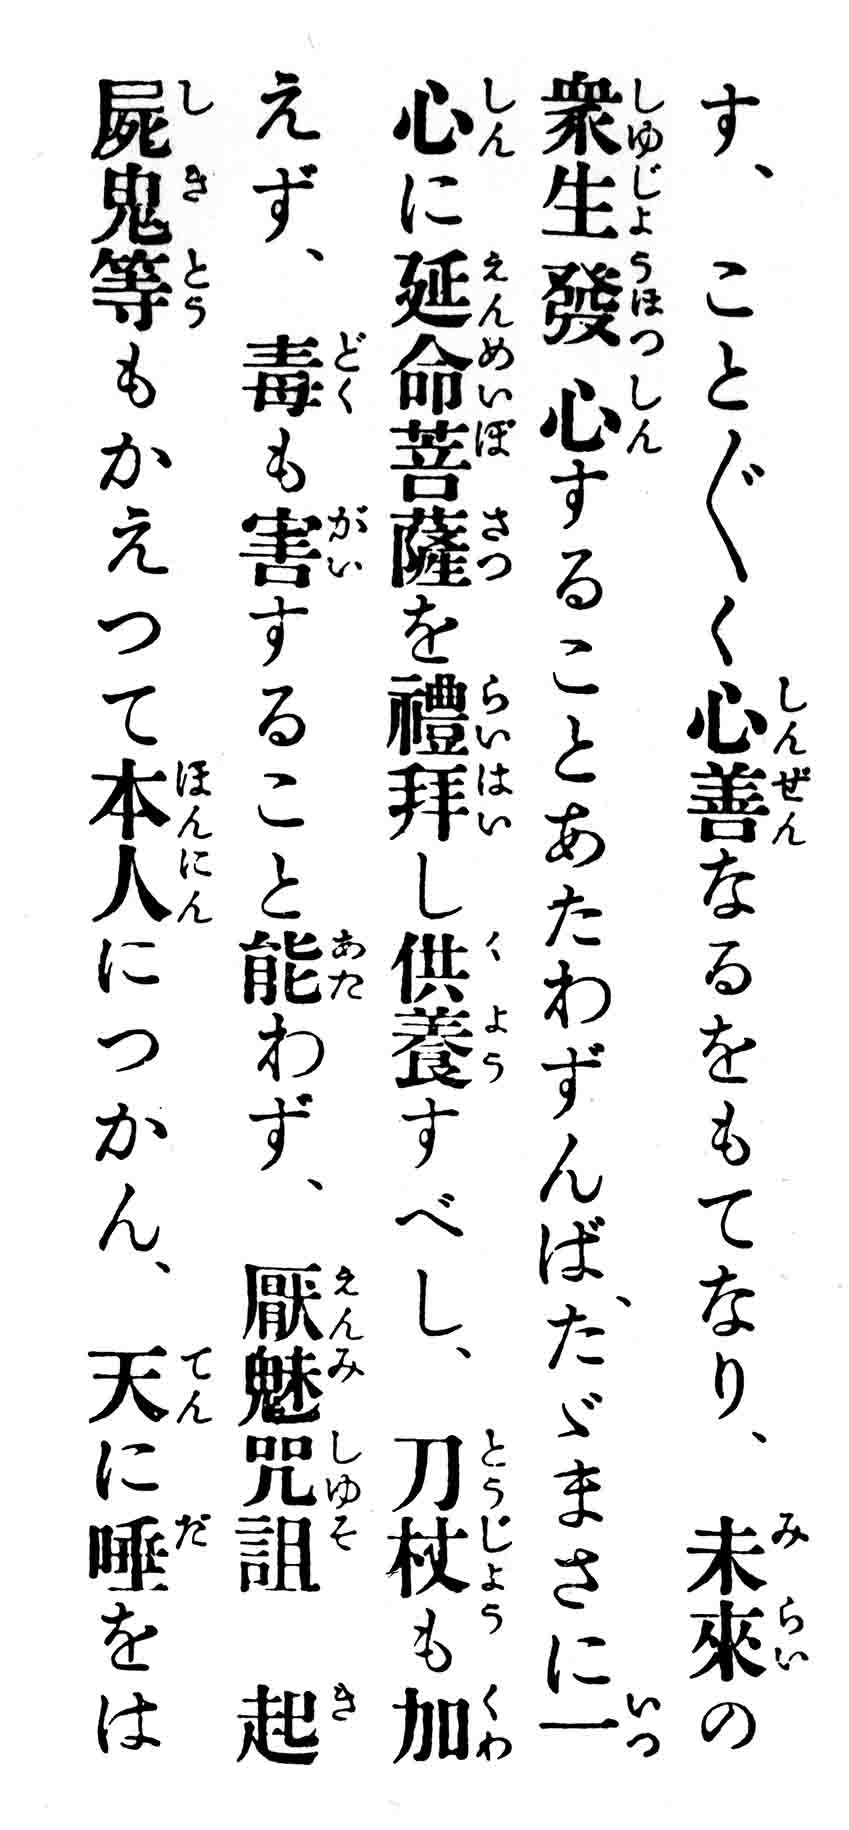 す、こと〴〵く心善なるをもてなり、未來の
衆生發心することあたわずんば、たゞまさに一
心に延命菩薩を禮拜し供養すべし、刀杖も加
えず、毒も害すること能わず、厭魅咒詛起
屍鬼等もかえつて本人につかん、天に唾をは